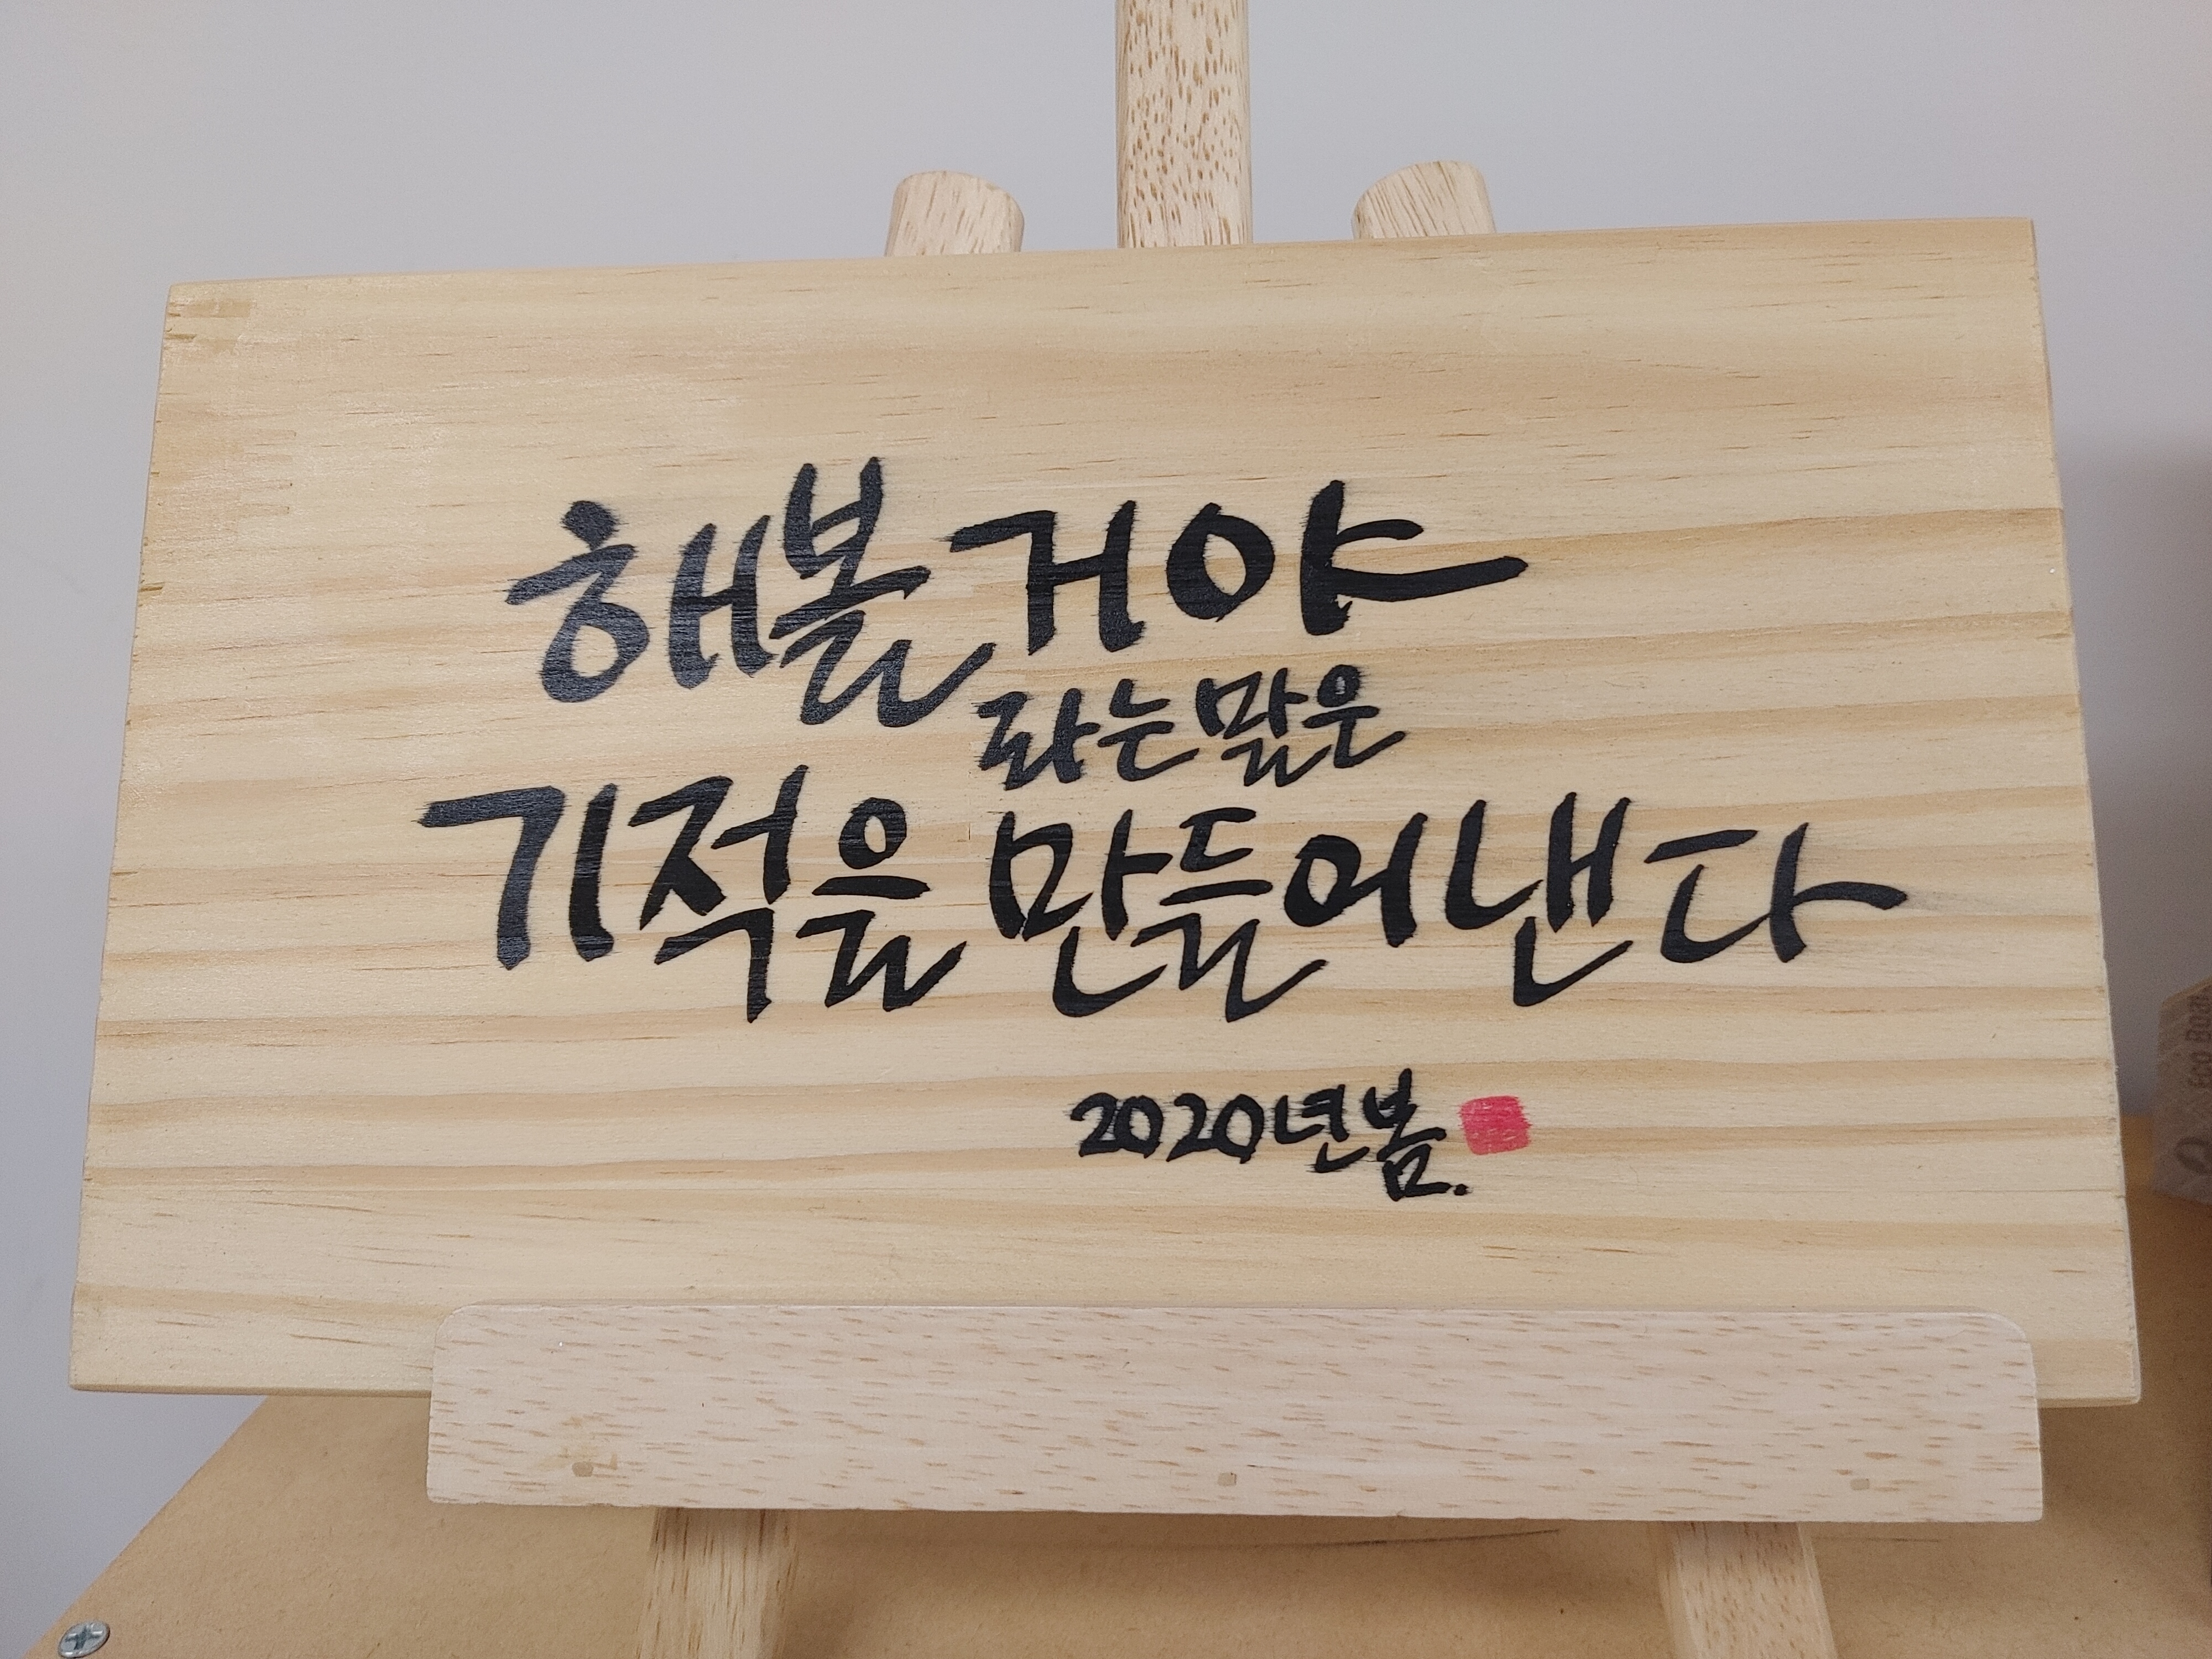 해볼 거야
라는 말은
기적을 만들어 낸다
2020년 봄.